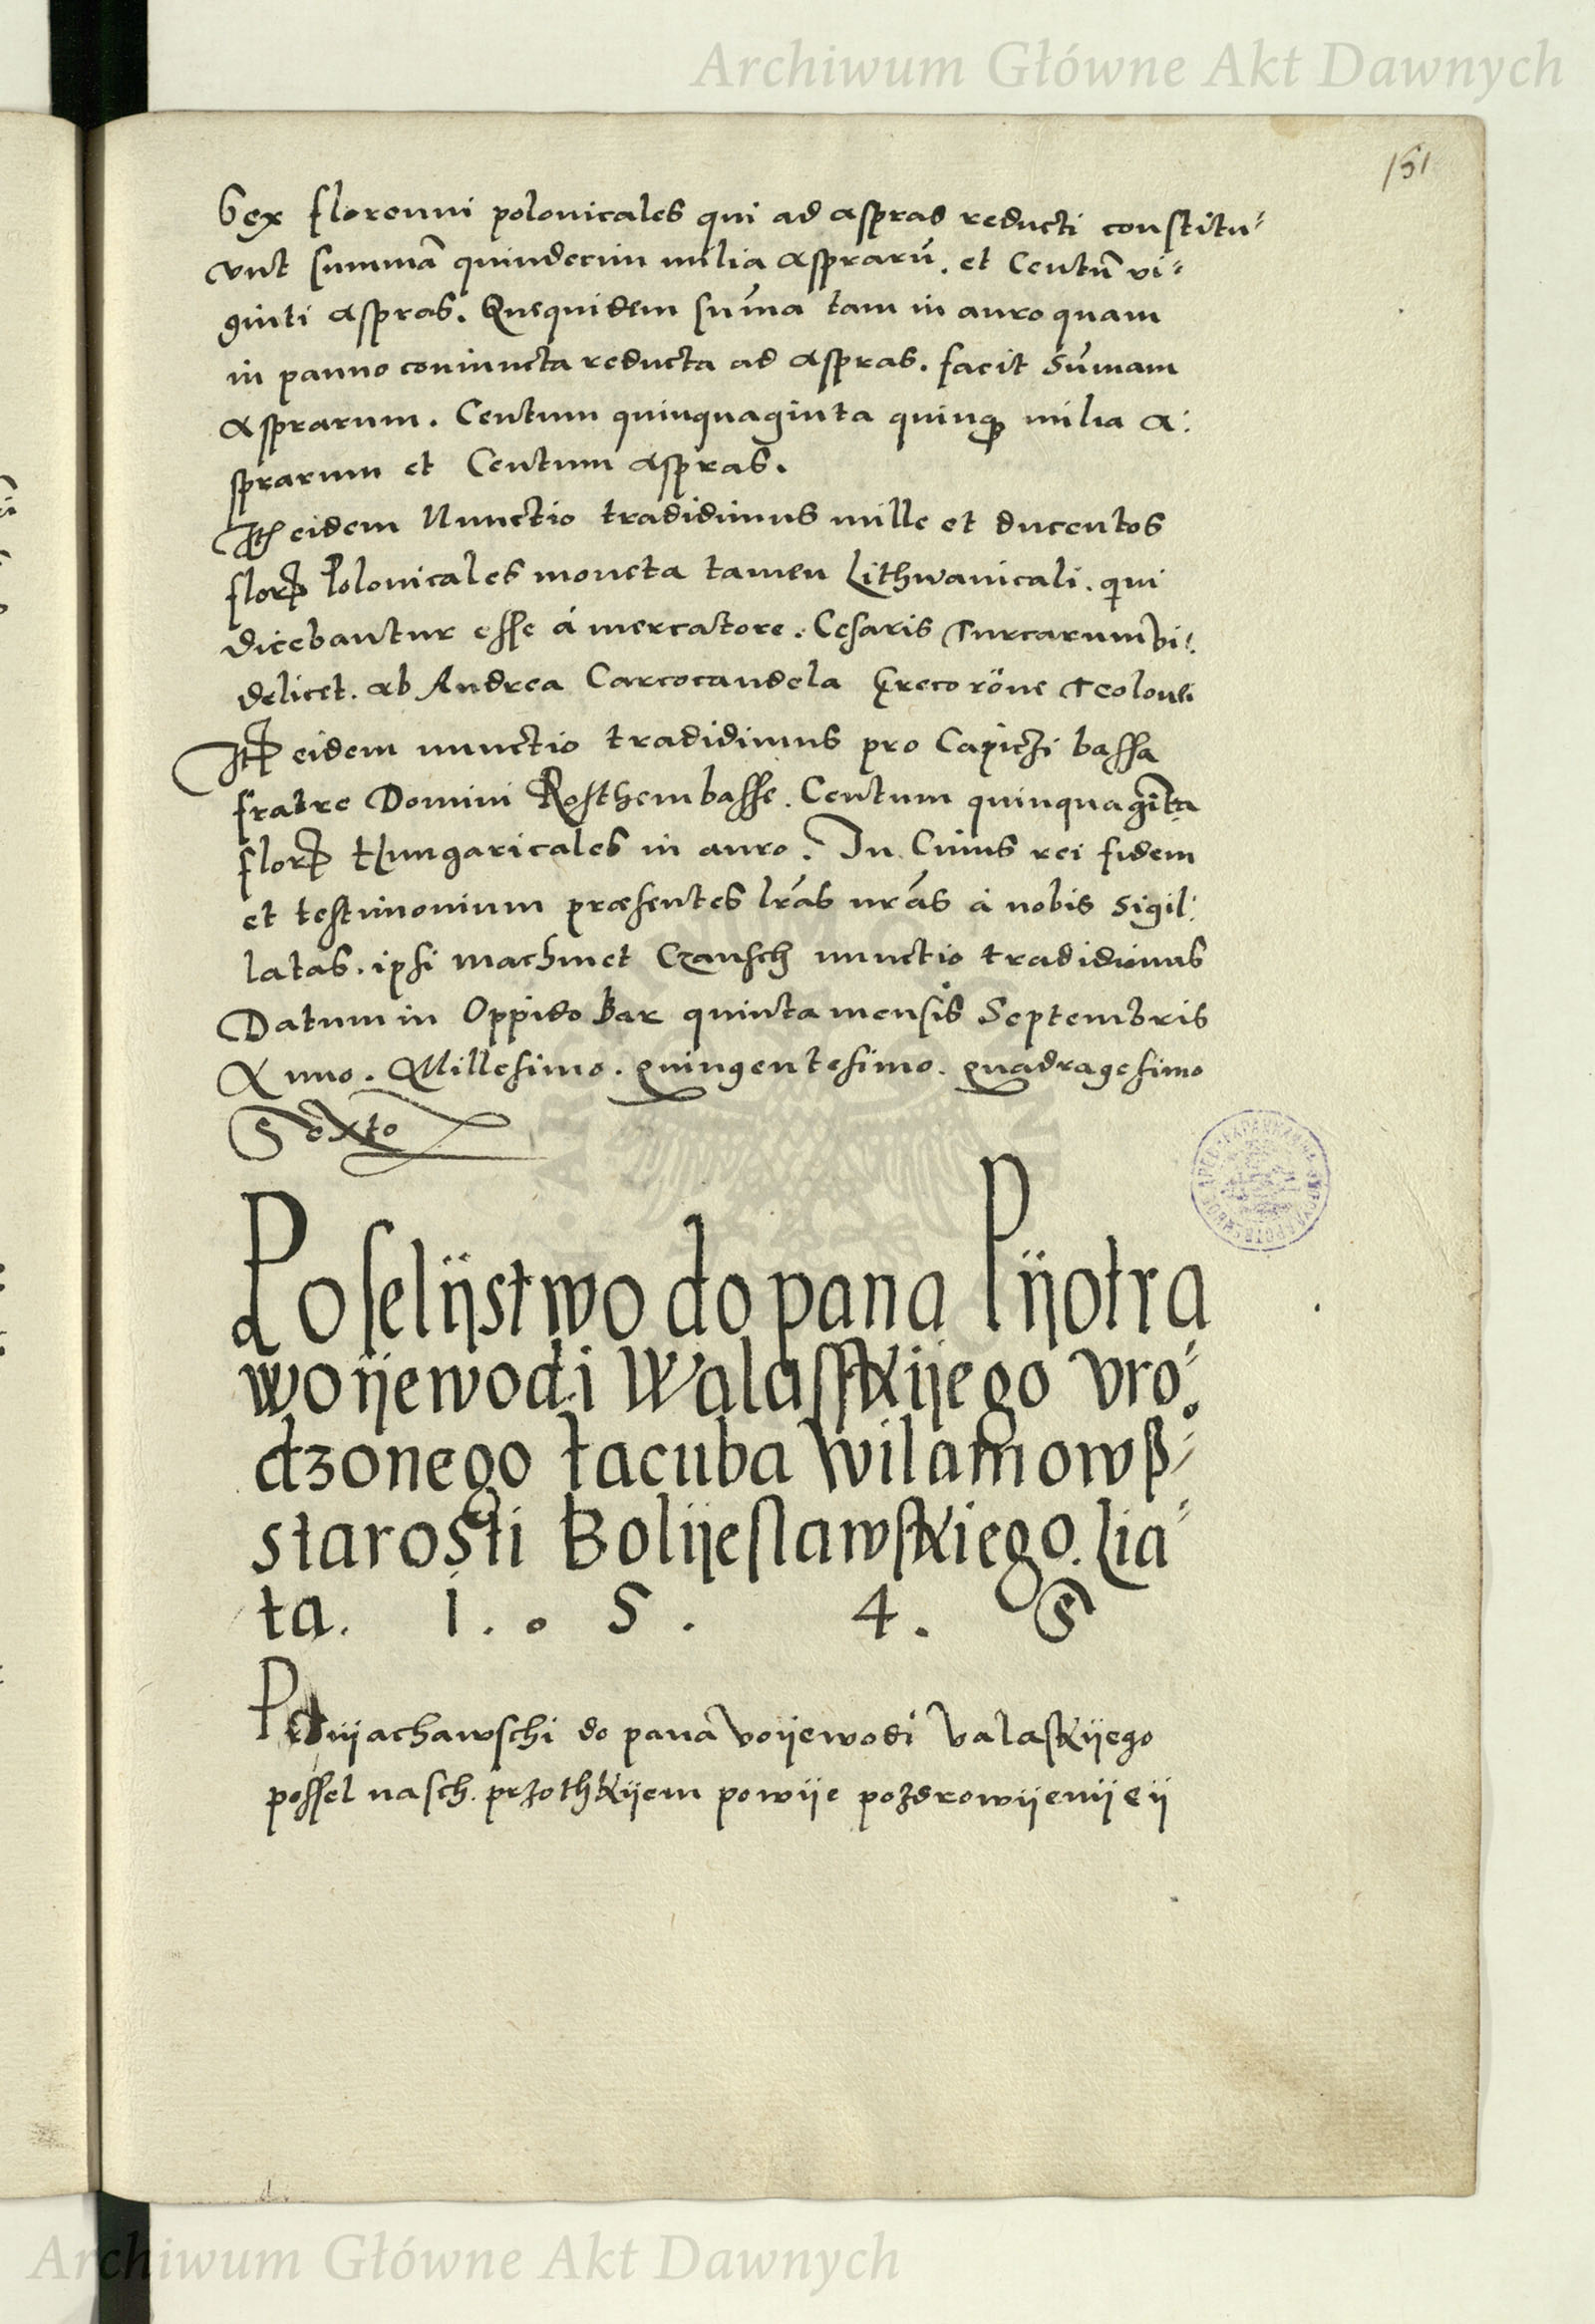 Archiwum Główne Akt Dawnych
151
Sex florenni polonicales qui ad aspras reducti constitu-
unt summā quindecim milia asprarū. et Centū vi-
ginti aspras. Quequidem sum̄a tam in auro quam
in panno coniuncta reducta ad aspras. facit Sum̄am
asprarum. Centum quinquaginta quinq3 milia a:
sprarum et Centum aspras.
eidem Nunctio tradidimus mille et ducentos
flor Polonicales moneta tamen Lithwanicali. qui
dicebantur esse á mercatore. Cesaris Turcarum vi:
delicet. ab Andrea Carcocandela Greco rōne Teolonei
eidem nunctio tradidimus pro Capiczi bassa
fratre Domini Rosthembasse. Centum quinquaginta
flor Hungaricales in auro. In Cuius rei fidem
et testimonium præsentes lrās nrās à nobis sigil:
latas. ipsi Machmet Czausch nunctio tradidimus
Datum in Oppido Bar quinta mensis Septembris
Anno. Millesimo. quingentesimo. quadragesimo
Sexto
Poselijstwo do pana Pijotra
woijewodi Walasskijego vro-
dzonego Iacuba Wilamowß-
starosti Bolijeslawskiego. Lia-
ta. 1. . 5 . 4. 6
do pana voijewodi valaskijego
possel nasch. przothkijem powije pozdrowijenijeij
Archiwum Główne Akt Dawnych